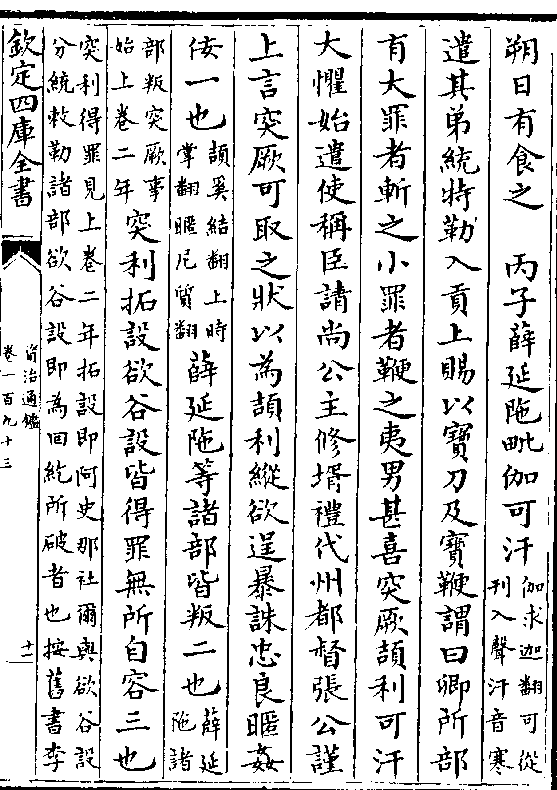 朔日有食之　丙子薛延陁毗伽可汗伽求迦翻可從刋入聲汗音寒
遣其弟統特勒入貢上賜以寶刀及寶鞭謂曰卿所部
有大罪者斬之小罪者鞭之夷男甚喜突厥頡利可汗
大懼始遣使稱臣請尚公主修壻禮代州都督張公謹
上言突厥可取之狀以為頡利縱欲逞暴誅忠良暱姦
佞一也頡奚結翻上時掌翻暱尼質翻薛延陁等諸部皆叛二也薛延陁諸
部叛突厥事始上卷二年突利拓設欲谷設皆得罪無所自容三也
突利得罪見上卷二年拓設即阿史那社爾與欲谷設
分統敕勒諸部欲谷設即為回紇所破者也按舊書李
欽定四庫全書
資治通鑑
卷一百九十三
十一